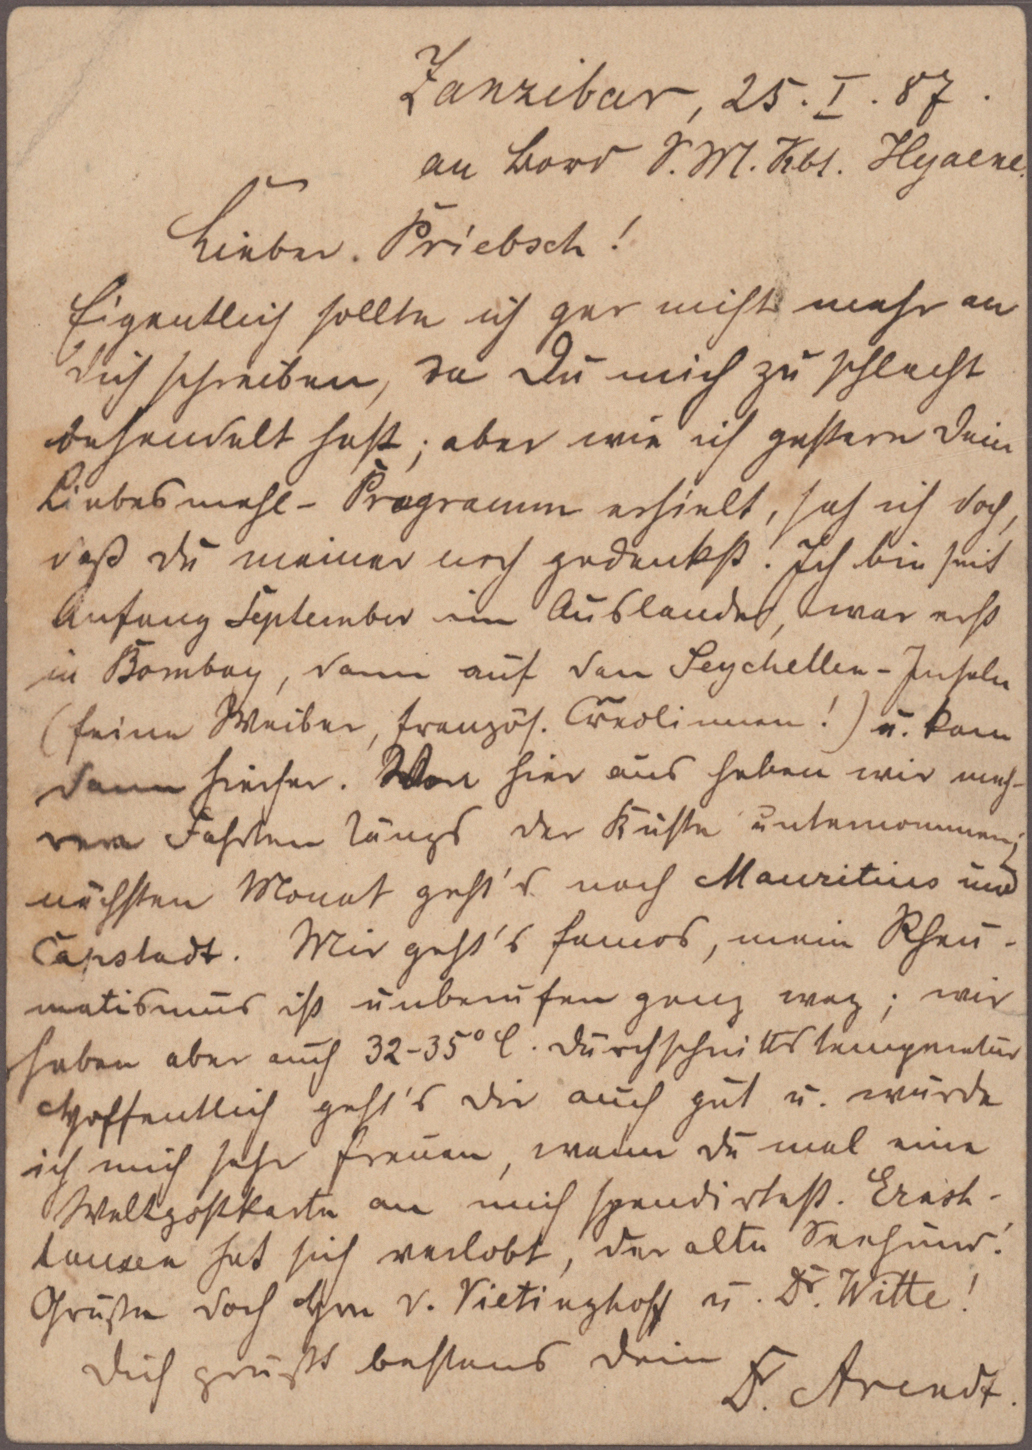 Zanzibar, 25. I. 87.
an Bord S. M. Kbt. Hyaene.
Lieber Priebsch!
Eigentlich sollte ich gar nicht mehr an
Dich schreiben, da Du mich zu schlecht
behandelt hast; aber wie ich gestern Dein
Liebesmahl-Programm erhielt, sah ich doch,
daß Du meiner noch gedenkst. Ich bin seit
Anfang September im Auslande, war erst
in Bombay, dann auf den Seychellen-Inseln
(feine Weiber, französ. Creolinnen!) u. kam
dann hierher. Von hier aus haben wir meh-
rere Fahrten längs der Küste unternommen;
nächsten Monat geht's nach Mauritius und
Capstadt. Mir geht's famos, mein Rheu-
matismus ist unberufen ganz weg; wir
haben aber auch 32-35° C. Durchschnittstemperatur
Hoffentlich geht's Dir auch gut u. würde
ich mich sehr freuen, wenn Du mal eine
Weltpostkarte an mich spendirtest.
hat sich verlobt, der alte Seehund!
Grüße doch Hrn v. Vietinghoff u. Dr. Witte!
Dich grüßt bestens Dein
Dr. Arendt.